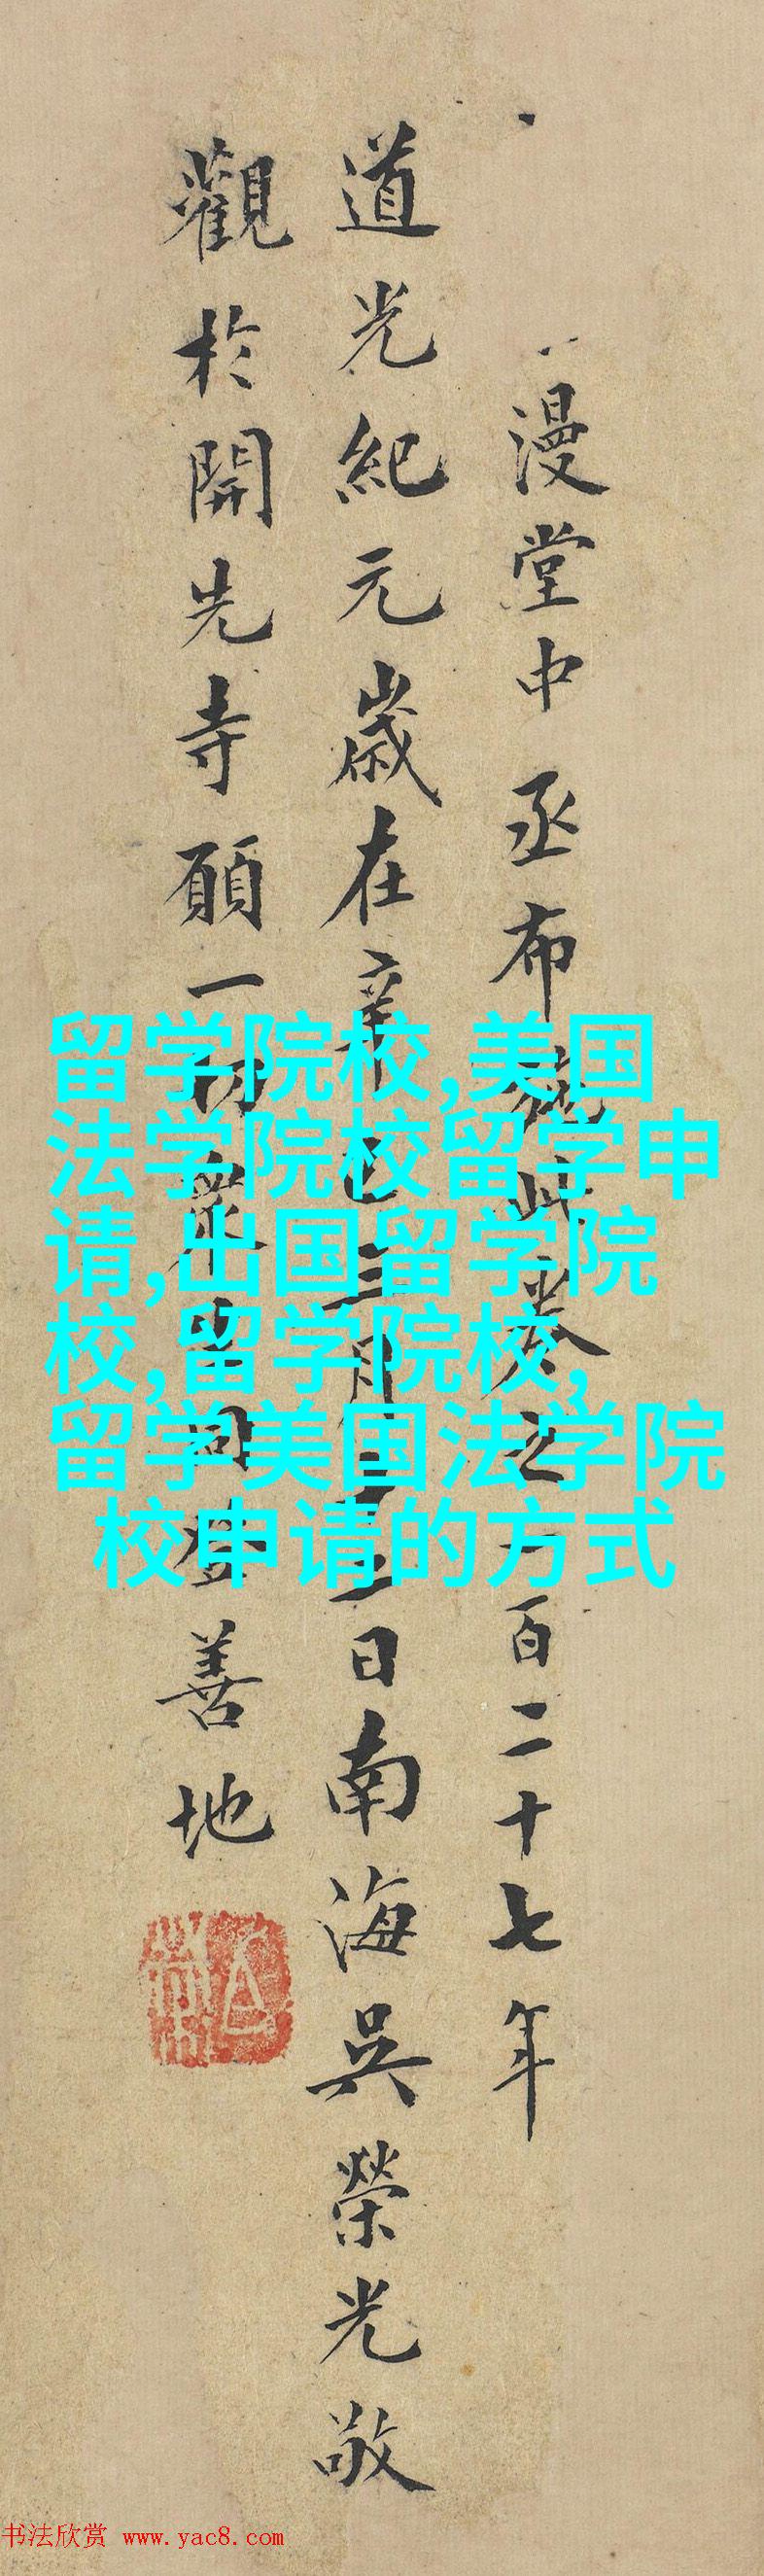 漫堂中丞布施此卷之一百二十七年
道光紀元歲在辛巳三月二十二日南海吳榮光敬
觀於開先寺願一切眾生同登善地
留学院校,美国
法学院校留学申
请,出国留学院
校,留学院校,
留学美国法学院
校申请的方式
书法欣赏 www.yac8.com